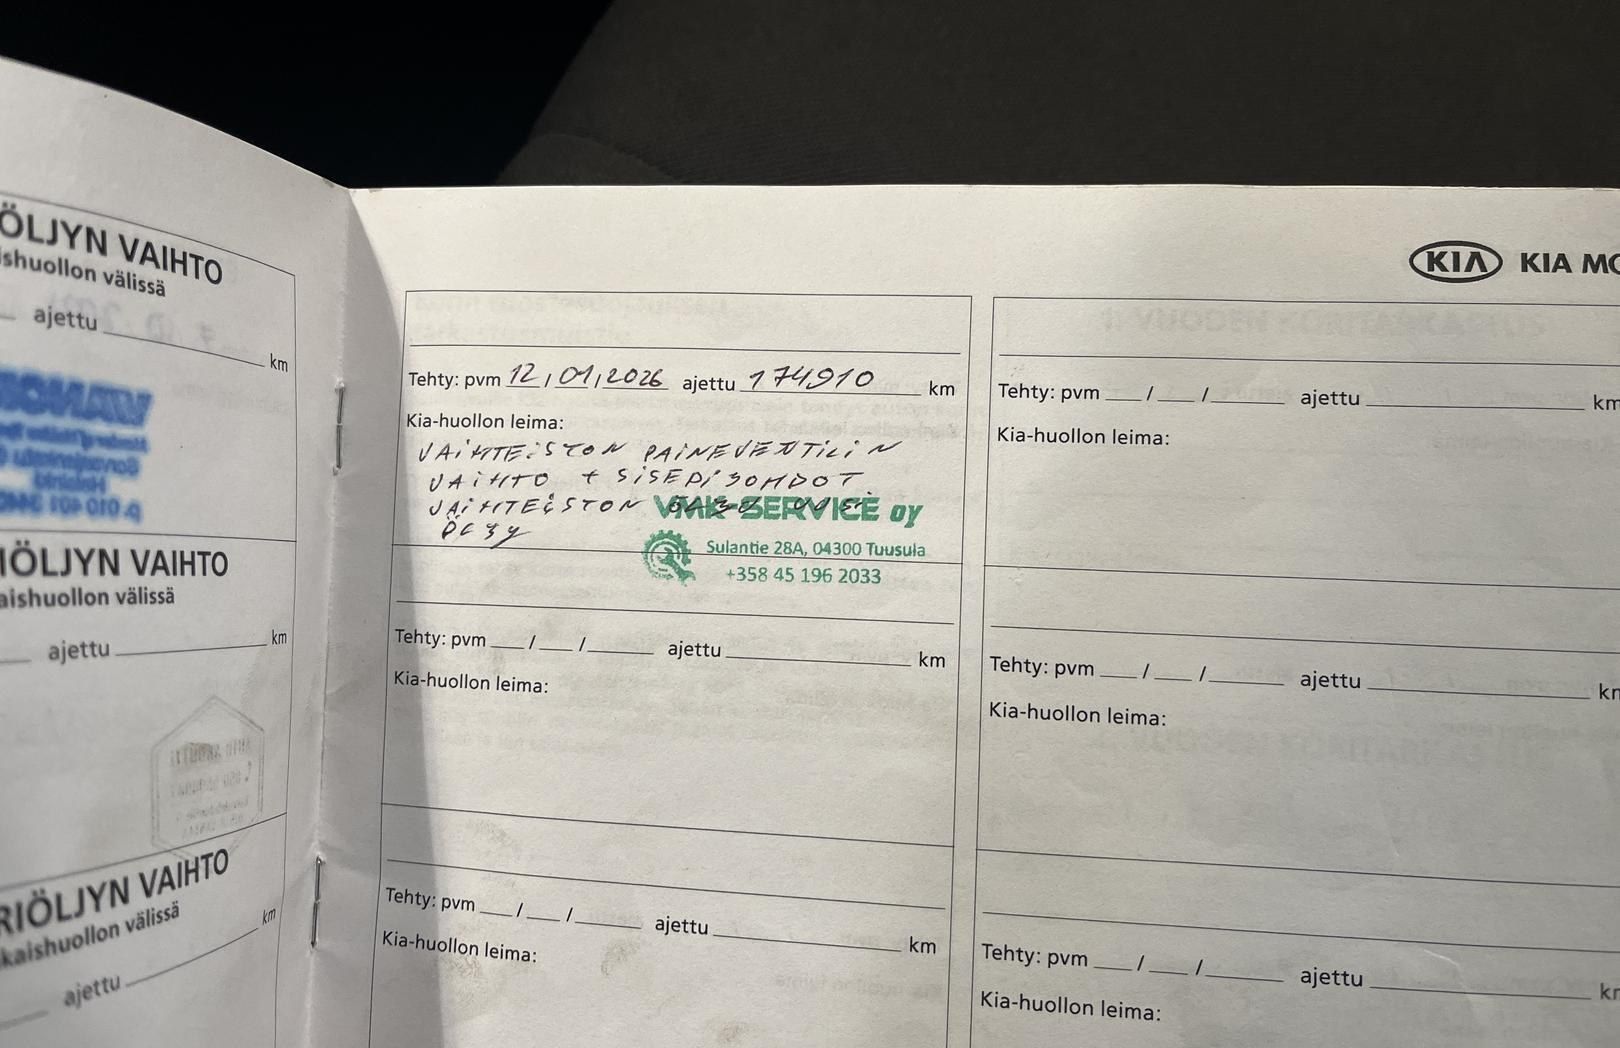 ÖLJYN VAIHTO
ishuollon välissä
ajettu km
IÖLJYN VAIHTO
aishuollon välissä
ajettu km
RIÖLJYN VAIHTO
kaishuollon välissä
ajettu km
KIA KIA MO
Tehty: pvm 12/01/2026 ajettu 174910 km
Kia-huollon leima:
VAIHTEISTON PAINEVENTILIN
VAIHTO + SISEPI JOHDOT
VAIHTEISTON
ÖLJY
VMK-SERVICE oy
Sulantie 28A, 04300 Tuusula
+358 45 196 2033
Tehty: pvm / / ajettu km
Kia-huollon leima:
Tehty: pvm / / ajettu km
Kia-huollon leima:
Tehty: pvm / / ajettu km
Kia-huollon leima:
Tehty: pvm / / ajettu km
Kia-huollon leima:
Tehty: pvm / / ajettu km
Kia-huollon leima: